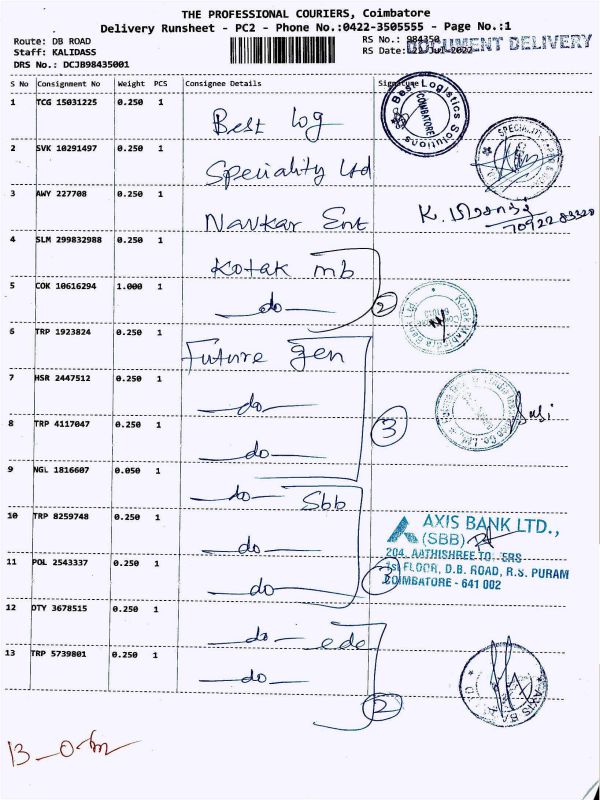 THE PROFESSIONAL COURIERS, Coimbatore
Delivery Runsheet - PC2 - Phone No.:0422-3505555 - Page No.:1
Route: DB ROAD
Staff: KALIDASS
DRS No.: DCJB98435001
RS No.: 984350
RS Date: 22-Jul-2022
DOCUMENT DELIVERY
S No Consignment No Weight PCS Consignee Details Signature
1 TCG 15031225 0.250 1 Best Log
Best Logistics Solutions
COIMBATORE
2 SVK 10291497 0.250 1 Speciality Ltd
SPECIALITY
3 AWY 227708 0.250 1 Navkar Ent
K.
4 SLM 299832988 0.250 1 Kotak mb
5 COK 10616294 1.000 1 do
2
Kotak Mahindra Bank Ltd.
6 TRP 1923824 0.250 1 Future Gen
7 HSR 2447512 0.250 1 do
8 TRP 4117047 0.250 1 do
3
9 NGL 1816607 0.050 1 do Sbb
10 TRP 8259748 0.250 1 do
11 POL 2543337 0.250 1 do
AXIS BANK LTD.,
(SBB)
204, AATHISHREE TO ERS
1st FLOOR, D.B. ROAD, R.S. PURAM
COIMBATORE - 641 002
12 OTY 3678515 0.250 1 do ede
13 TRP 5739801 0.250 1 do
2
AXIS BA